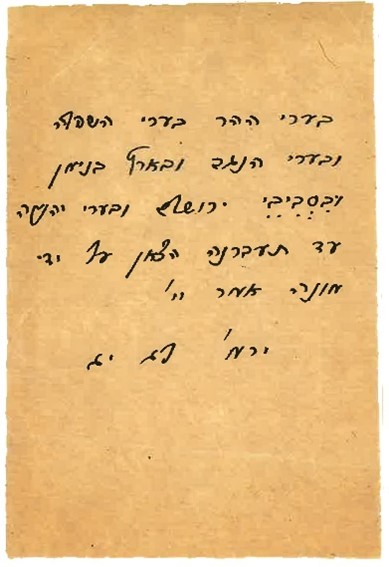 בערי ההר בערי השפלה
ובערי הנגב ובארץ בנימן
וּבִסְבִיבֵי ירושלם ובערי יהודה
עד תעברנה הצאן על ידי
מונה אמר יי'
ירמ' לג יג